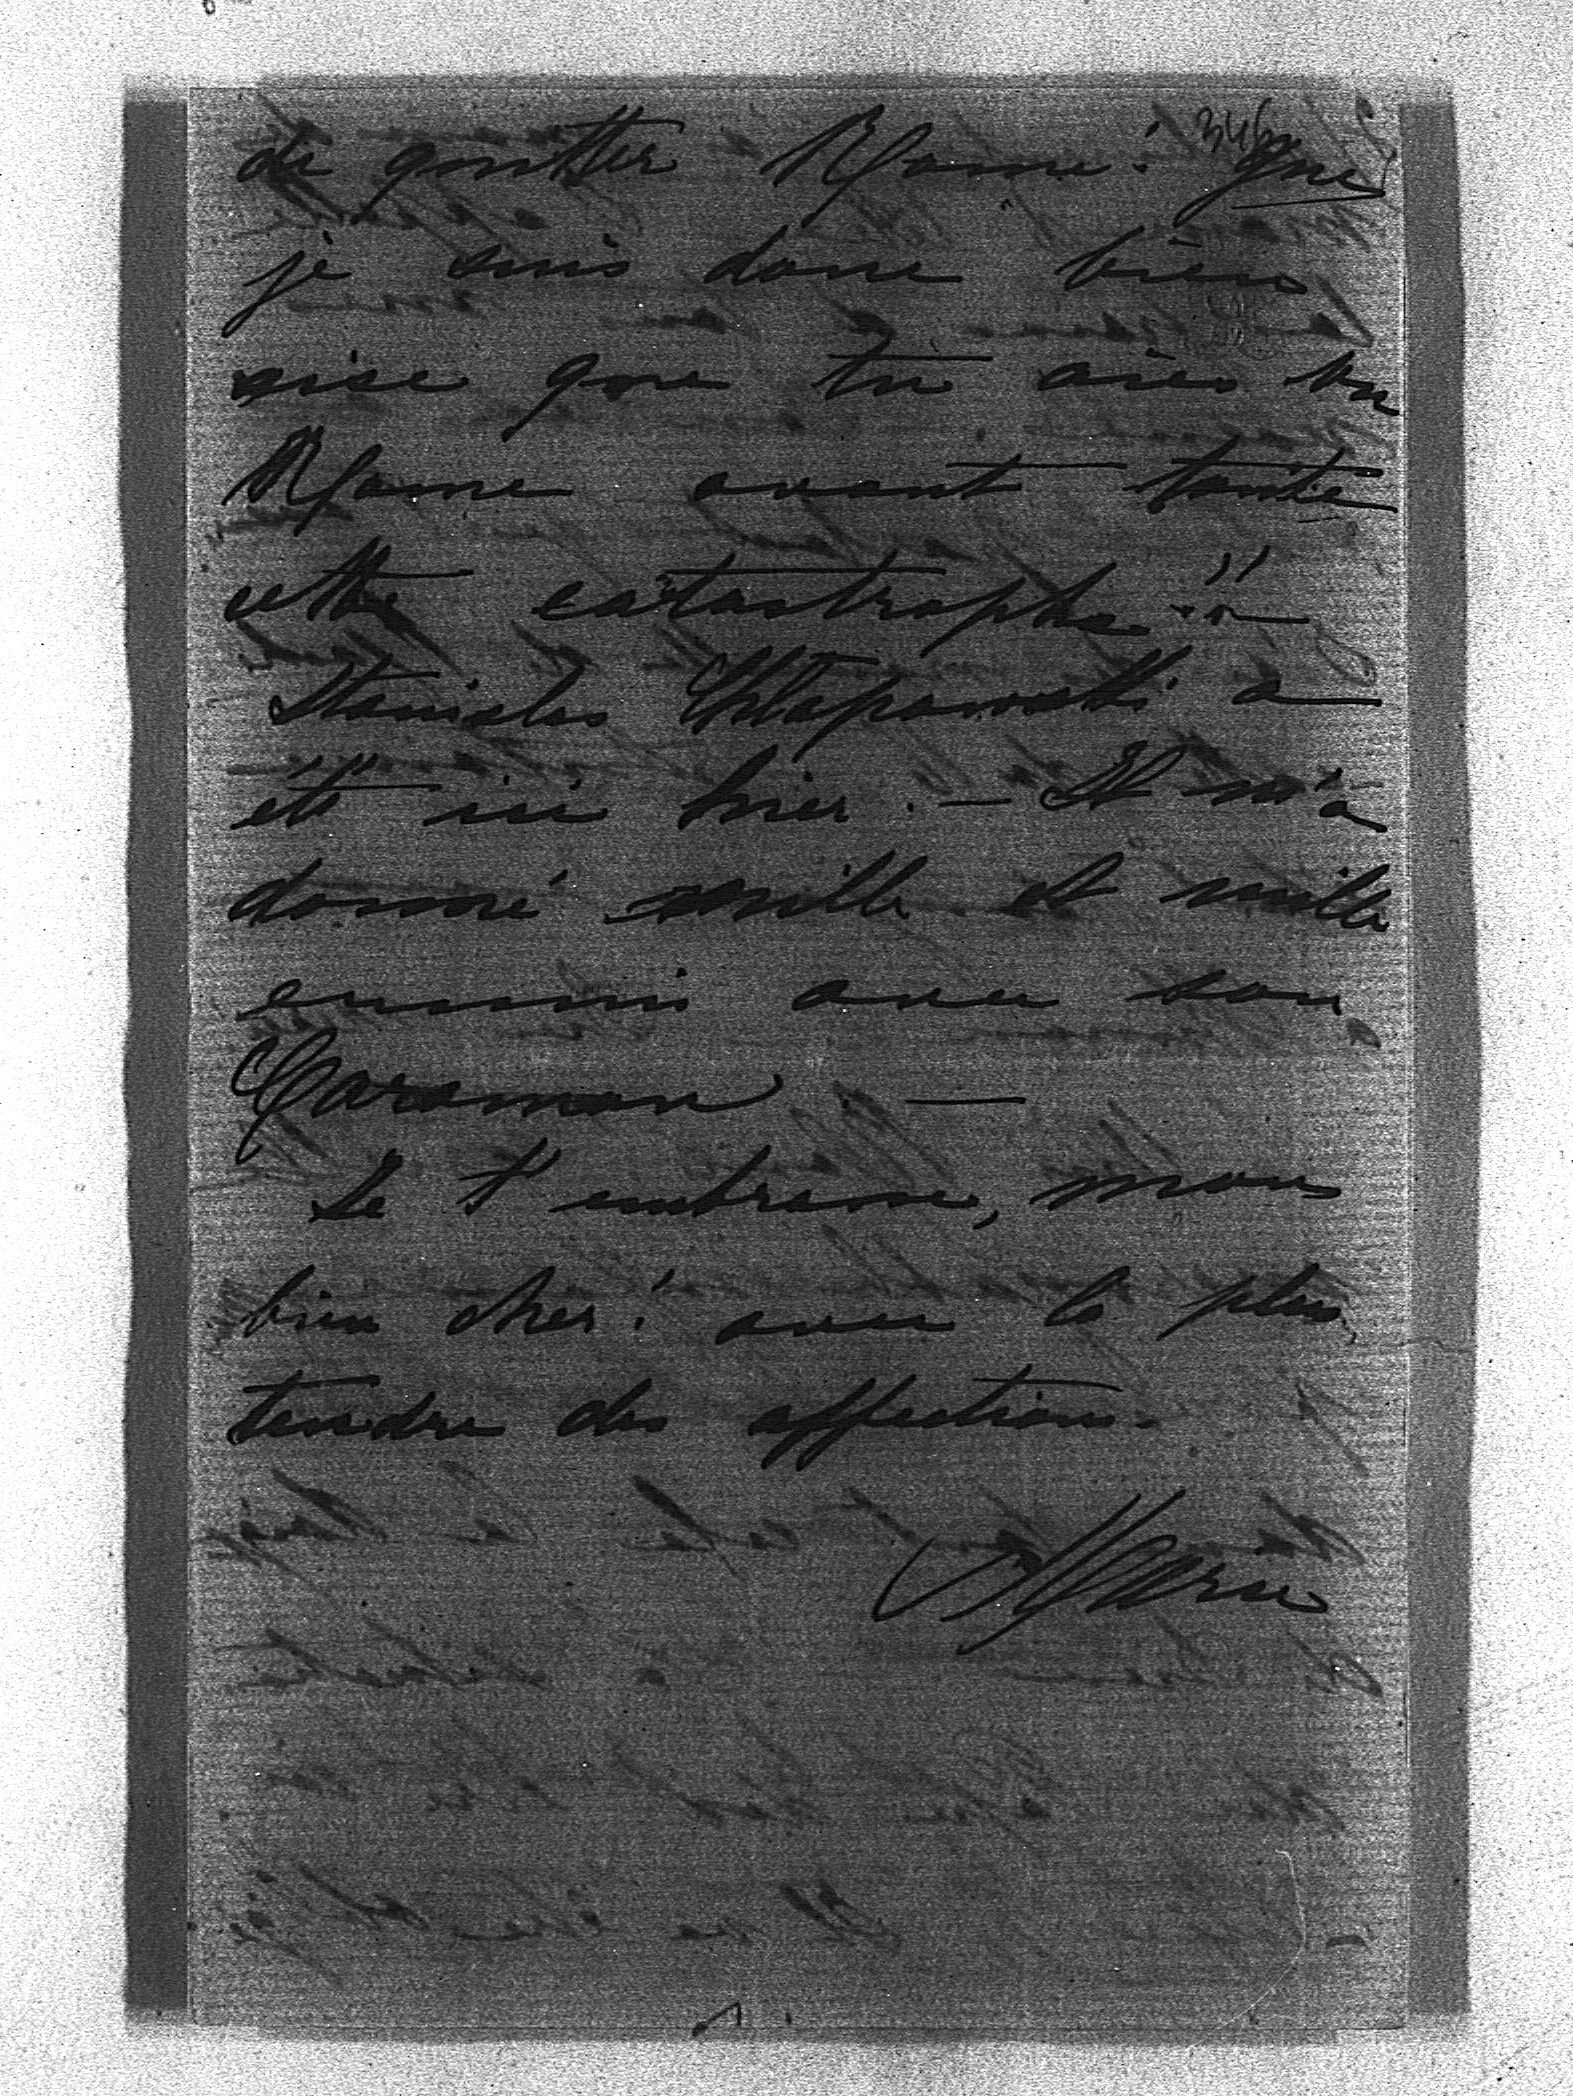 de quitter Rome! Que
je suis donc bien
aise que tu aies vu
Rome avant toute
cette catastrophe!!
Stanislas Chlapowski a
été ici hier. — Il m'a
donné mille et mille
ennuis avec son
Caraman —
Je t'embrasse, mon
bien cher! avec la plus
tendre des affections.
Marie